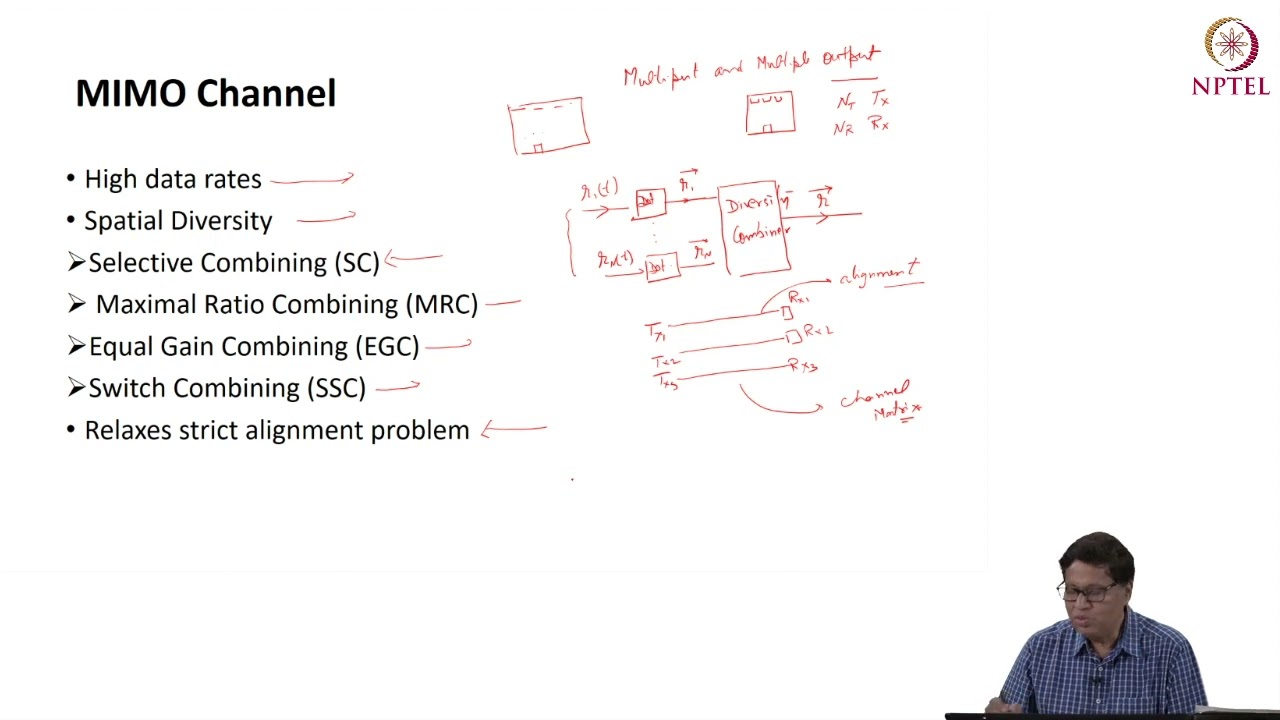 MIMO Channel
• High data rates
• Spatial Diversity
➢Selective Combining (SC)
➢ Maximal Ratio Combining (MRC)
➢Equal Gain Combining (EGC)
➢Switch Combining (SSC)
• Relaxes strict alignment problem
Multiput and Multiple output
N_T Tx
N_R Rx
r₁(t)
Det
r₁
Diversity
Combiner
r
r_N(t)
Det
r_N
alignment
Tx1
Rx1
Tx2
Rx2
Tx3
Rx3
Channel
Matrix
NPTEL